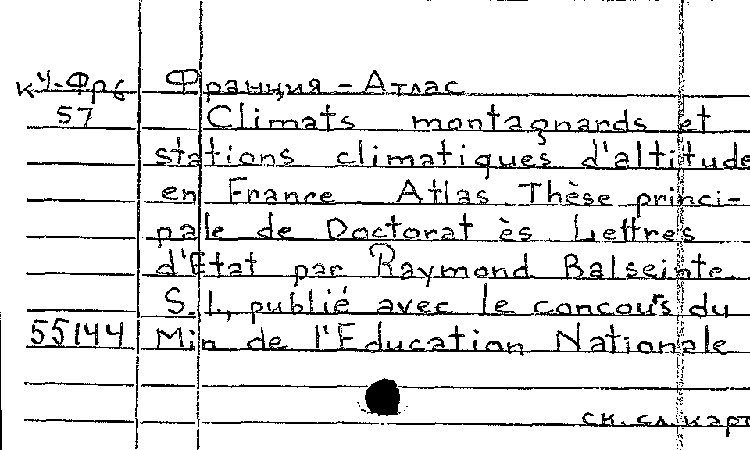 кУ-Фр6 Франция - Атлас
57 Climats montagnards et
stations climatiques d'altitude
en France Atlas Thèse princi-
pale de Doctorat ès Lettres
d'Etat par Raymond Balseinte
S.l., publié avec le concours du
55144 Min de l'Education Nationale
ск. сл. карт